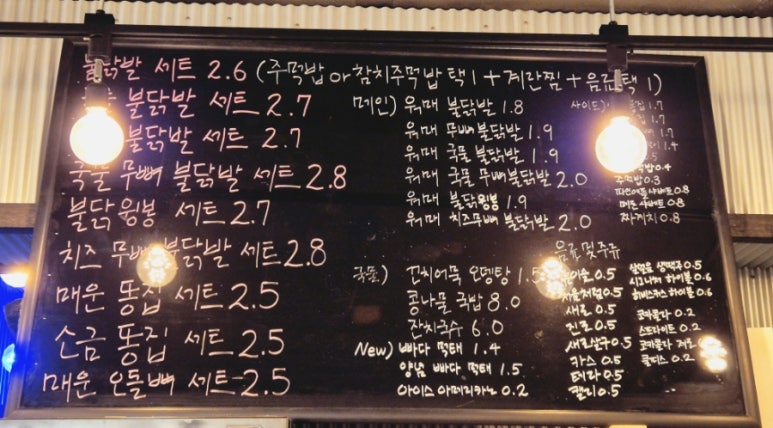 불닭발 세트 2.6 (주먹밥 or 참치주먹밥 택1 + 계란찜 + 음료택1)
불닭발 세트 2.7
불닭발 세트 2.7
국물 무뼈 불닭발 세트 2.8
불닭윙봉 세트 2.7
치즈 무뼈 불닭발 세트 2.8
매운 똥집 세트 2.5
소금 똥집 세트 2.5
매운 오돌뼈 세트 2.5
메인) 워매 불닭발 1.8
워매 무뼈불닭발 1.9
워매 국물 불닭발 1.9
워매 국물 무뼈불닭발 2.0
워매 불닭윙봉 1.9
워매 치즈무뼈 불닭발 2.0
국물) 오뎅탕 1.5
콩나물 국밥 8.0
잔치국수 6.0
New) 빠다 먹태 1.4
양념 빠다 먹태 1.5
아이스 아메리카노 0.2
사이드) 1.7
1.7
1.7
1.4
0.5
0.4
주먹밥 0.3
파인애플 샤베트 0.8
메론 샤베트 0.8
짜계치 0.8
음료 및 주류
0.5
처음처럼 0.5
새로 0.5
진로 0.5
새로살구 0.5
카스 0.5
테라 0.5
켈리 0.5
생맥주 0.5
하이볼 0.6
히비스커스 하이볼 0.6
코카콜라 0.2
스프라이트 0.2
코카콜라 제로
쿨피스 0.2